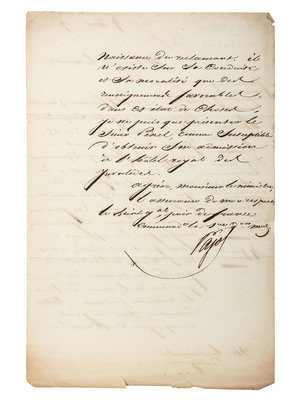 Naissance du réclamant, il
n'existe sur sa conduite
et sa moralité que des
renseignements favorables
Dans cet état de choses
je ne puis que présenter le
Sieur comme susceptible
d'obtenir son admission
à l'hotel royal des
invalides
agréez, monsieur le ministre,
l'assurance de mon respect
le Lieut. gal pair de france
Commandt la 1ere don mre
Pajol